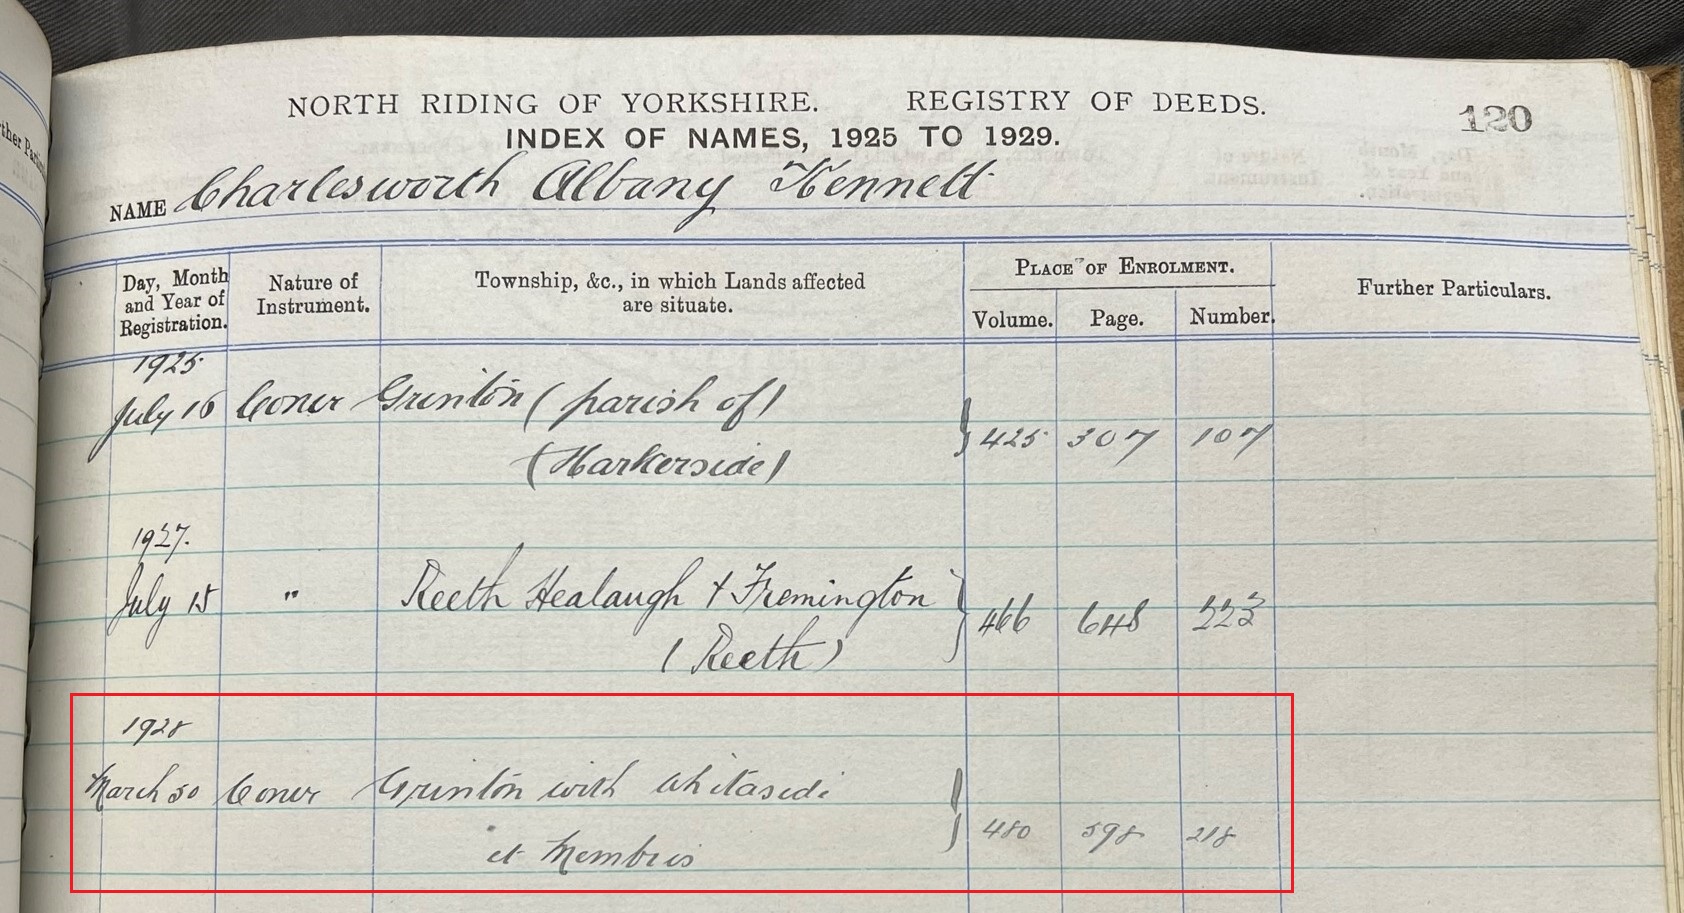 ther Parti
NORTH RIDING OF YORKSHIRE. REGISTRY OF DEEDS.
120
INDEX OF NAMES, 1925 TO 1929.
NAME Charlesworth Albany Kennett
Day, Month and Year of Registration. Nature of Instrument. Township, &c., in which Lands affected are situate. PLACE OF ENROLMENT. Volume. Page. Number. Further Particulars.
1925
July 16 Coner Grinton (parish of) 
(Harkerside) 425 307 107
1927.
July 15 " Reeth Healaugh & Fremington
(Reeth) 466 648 223
1928
March 30 Coner Grinton with Whitaside
et Membris 480 598 218